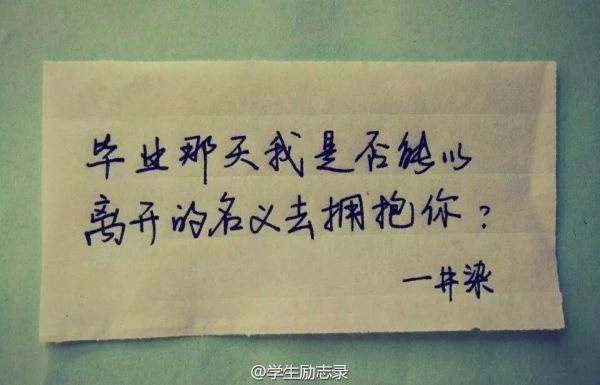 毕业那天我是否能以
离开的名义去拥抱你？
一井染
@学生励志录